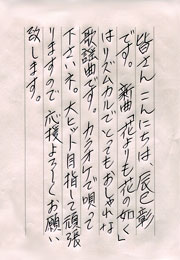 皆さんこんにちは、辰巳彰
です。新曲「花よりも花の如く」
はリズムカルでとってもおしゃれな
歌謡曲です。カラオケで唄って
下さいネ。大ヒット目指して頑張
りますので応援よろしくお願い
致します。